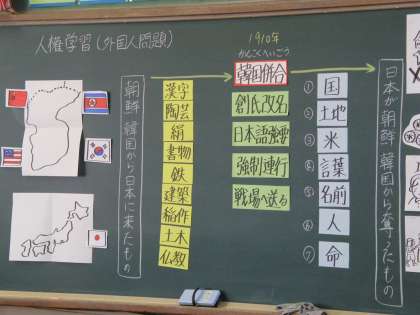 人権学習(外国人問題)
1910年
かんこくへいごう
韓国併合
朝鮮 韓国から日本に来たもの
漢字
陶芸
絹
書物
鉄
建築
稲作
土木
仏教
創氏改名
日本語強要
強制連行
戦場へ送る
① 国
② 土地
③ 米
④ 言葉
⑤ 名前
⑥ 人
⑦ 命
日本が朝鮮 韓国から奪ったもの